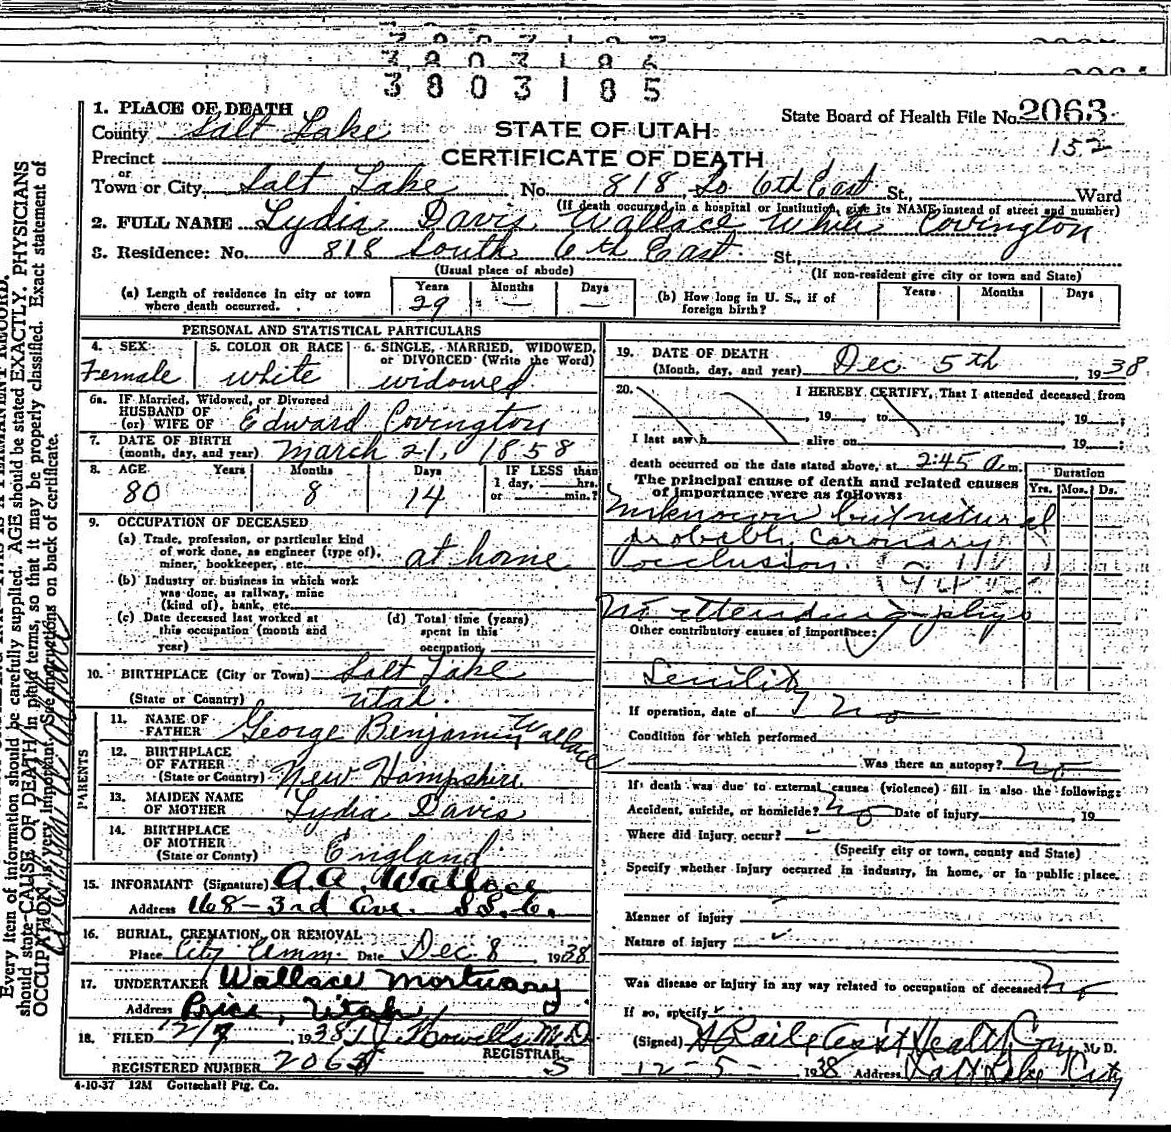 3803185
1. PLACE OF DEATH
County Salt Lake
State Board of Health File No. 2063
STATE OF UTAH
152
CERTIFICATE OF DEATH
Precinct
or
Town or City Salt Lake No. 818 So 6th East St. Ward
(If death occurred in a hospital or institution, give its NAME instead of street and number)
2. FULL NAME Lydia Davis Wallace White Covington
3. Residence: No. 818 South 6th East St.
(Usual place of abode) (If non-resident give city or town and State)
(a) Length of residence in city or town where death occurred. Years 29 Months — Days —
(b) How long in U. S., if of foreign birth? Years Months Days
PERSONAL AND STATISTICAL PARTICULARS
4. SEX Female
5. COLOR OR RACE white
6. SINGLE, MARRIED, WIDOWED, or DIVORCED (Write the Word) widowed
6a. IF Married, Widowed, or Divorced
HUSBAND OF
(or) WIFE OF Edward Covington
7. DATE OF BIRTH
(month, day, and year) March 21, 1858
8. AGE Years 80 Months 8 Days 14 IF LESS than 1 day, hrs. or min.?
9. OCCUPATION OF DECEASED
(a) Trade, profession, or particular kind
of work done, as engineer (type of),
miner, bookkeeper, etc. at home
(b) Industry or business in which work
was done, as railway, mine
(kind of), bank, etc.
(c) Date deceased last worked at
this occupation (month and
year)
(d) Total time (years)
spent in this
occupation
10. BIRTHPLACE (City or Town) Salt Lake
(State or Country) Utah.
PARENTS
11. NAME OF
FATHER George Benjamin Wallace
12. BIRTHPLACE
OF FATHER
(State or Country) New Hampshire
13. MAIDEN NAME
OF MOTHER Lydia Davis
14. BIRTHPLACE
OF MOTHER
(State or County) England
15. INFORMANT (Signature) A.A. Wallace
Address 168-3rd Ave. S.L.C.
16. BURIAL, CREMATION, OR REMOVAL
Place City Cemm. Date Dec 8 1938
17. UNDERTAKER Wallace Mortuary
Address Price, Utah
18. FILED 12/7, 1938 T.J. Howells M.D.
REGISTRAR
REGISTERED NUMBER 2063 S
4-10-37 12M Gottschall Ptg. Co.
19. DATE OF DEATH
(Month, day, and year) Dec 5th, 1938
20. I HEREBY CERTIFY, That I attended deceased from
, 19 to , 19
I last saw h alive on , 19 ;
death occurred on the date stated above, at 2:45 a.m.
The principal cause of death and related causes
of importance were as follows:
Duration
Yrs. Mos. Ds.
unknown but natural
probably coronary
occlusion.
No attending phys
Other contributory causes of importance:
Senility
If operation, date of no
Condition for which performed
Was there an autopsy? no
If death was due to external causes (violence) fill in also the following:
Accident, suicide, or homicide? no Date of injury , 19
Where did injury occur?
(Specify city or town, county and State)
Specify whether injury occurred in industry, in home, or in public place.
Manner of injury
Nature of injury
Was disease or injury in any way related to occupation of deceased? no
If so, specify
(Signed) M. D.
12-5-1938 Address Salt Lake City
Every item of information should be carefully supplied. AGE should be stated EXACTLY. PHYSICIANS
should state CAUSE OF DEATH in plain terms, so that it may be properly classified. Exact statement of
OCCUPATION is very important. See instructions on back of certificate.